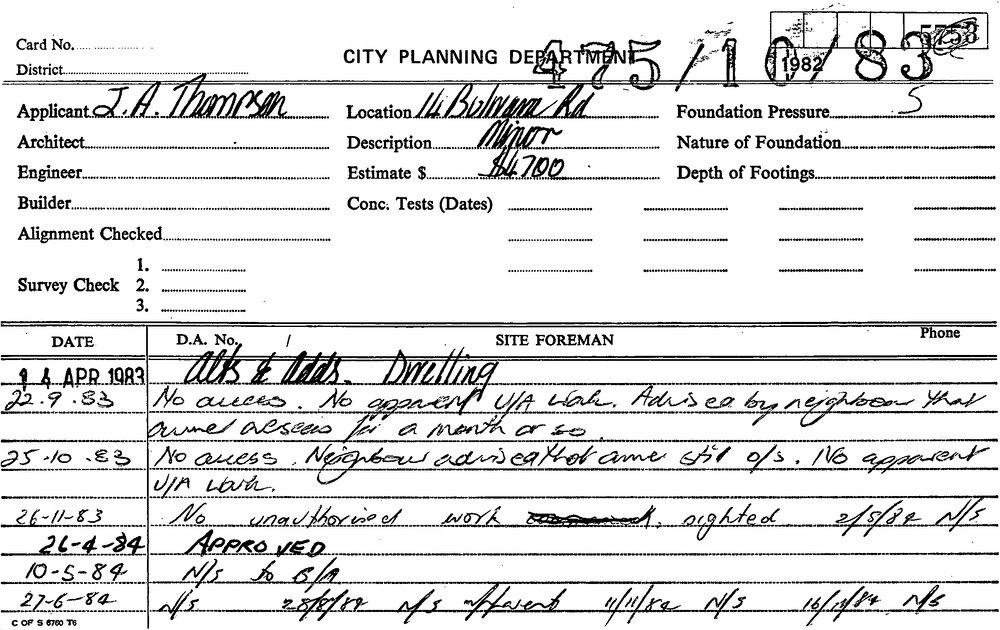 Card No.
District
CITY PLANNING DEPARTMENT
475/10/83
1982
Applicant J. A. Thompson Location 14 Rd Foundation Pressure S
Architect Description Minor Nature of Foundation
Engineer Estimate $ $4700 Depth of Footings
Builder Conc. Tests (Dates)
Alignment Checked
1.
Survey Check 2.
3.
DATE D.A. No. / SITE FOREMAN Phone
14 APR 1983 Alts & Adds. Dwelling
22.9.83 No access. No apparent U/A work. Advised by neighbour that
owner overseas for a month or so.
25.10.83 No access. Neighbour advised that owner still o/s. No apparent
U/A work.
26-11-83 No unauthorised work sighted 2/5/84 N/S
26-4-84 APPROVED
10-5-84 N/S to B/A
27-6-84 N/S 28/8/84 N/S apparent 11/11/84 N/S N/S
C OF S 6760 T6